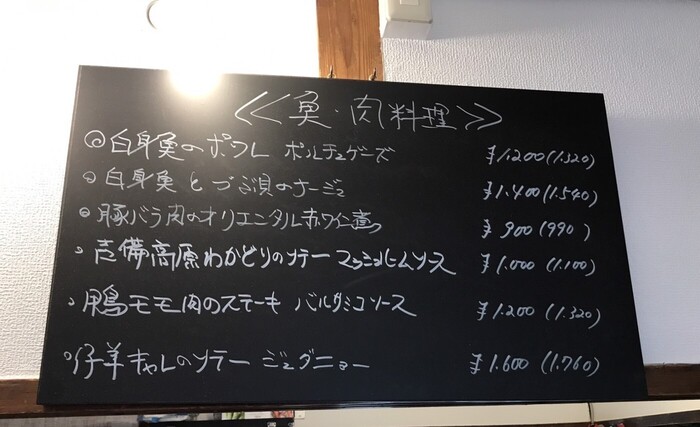 ≪魚・肉料理≫
◎白身魚のポワレ ポルチュゲーズ ¥1.200(1.320)
◦白身魚とつぶ貝のナージュ ¥1.400(1.540)
◦豚バラ肉のオリエンタル赤ワイン煮 ¥900(990)
◦吉備高原わかどりのソテー マッシュルームソース ¥1.000(1.100)
◦鴨モモ肉のステーキ バルサミコソース ¥1.200(1.320)
◦仔羊キャレのソテー ジュダニョー ¥1.600(1.760)